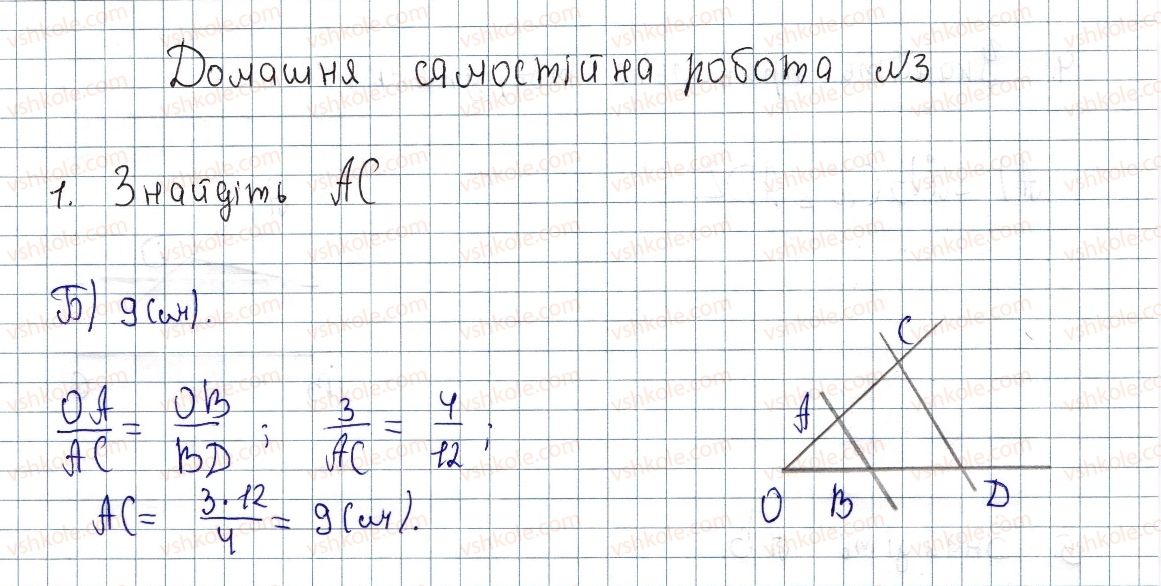 Домашня самостійна робота №3
1. Знайдіть АС
Б) 9(см).
OA/AC = OB/BD; 3/AC = 4/12;
AC = 3·12/4 = 9(см).
C
A
O B D